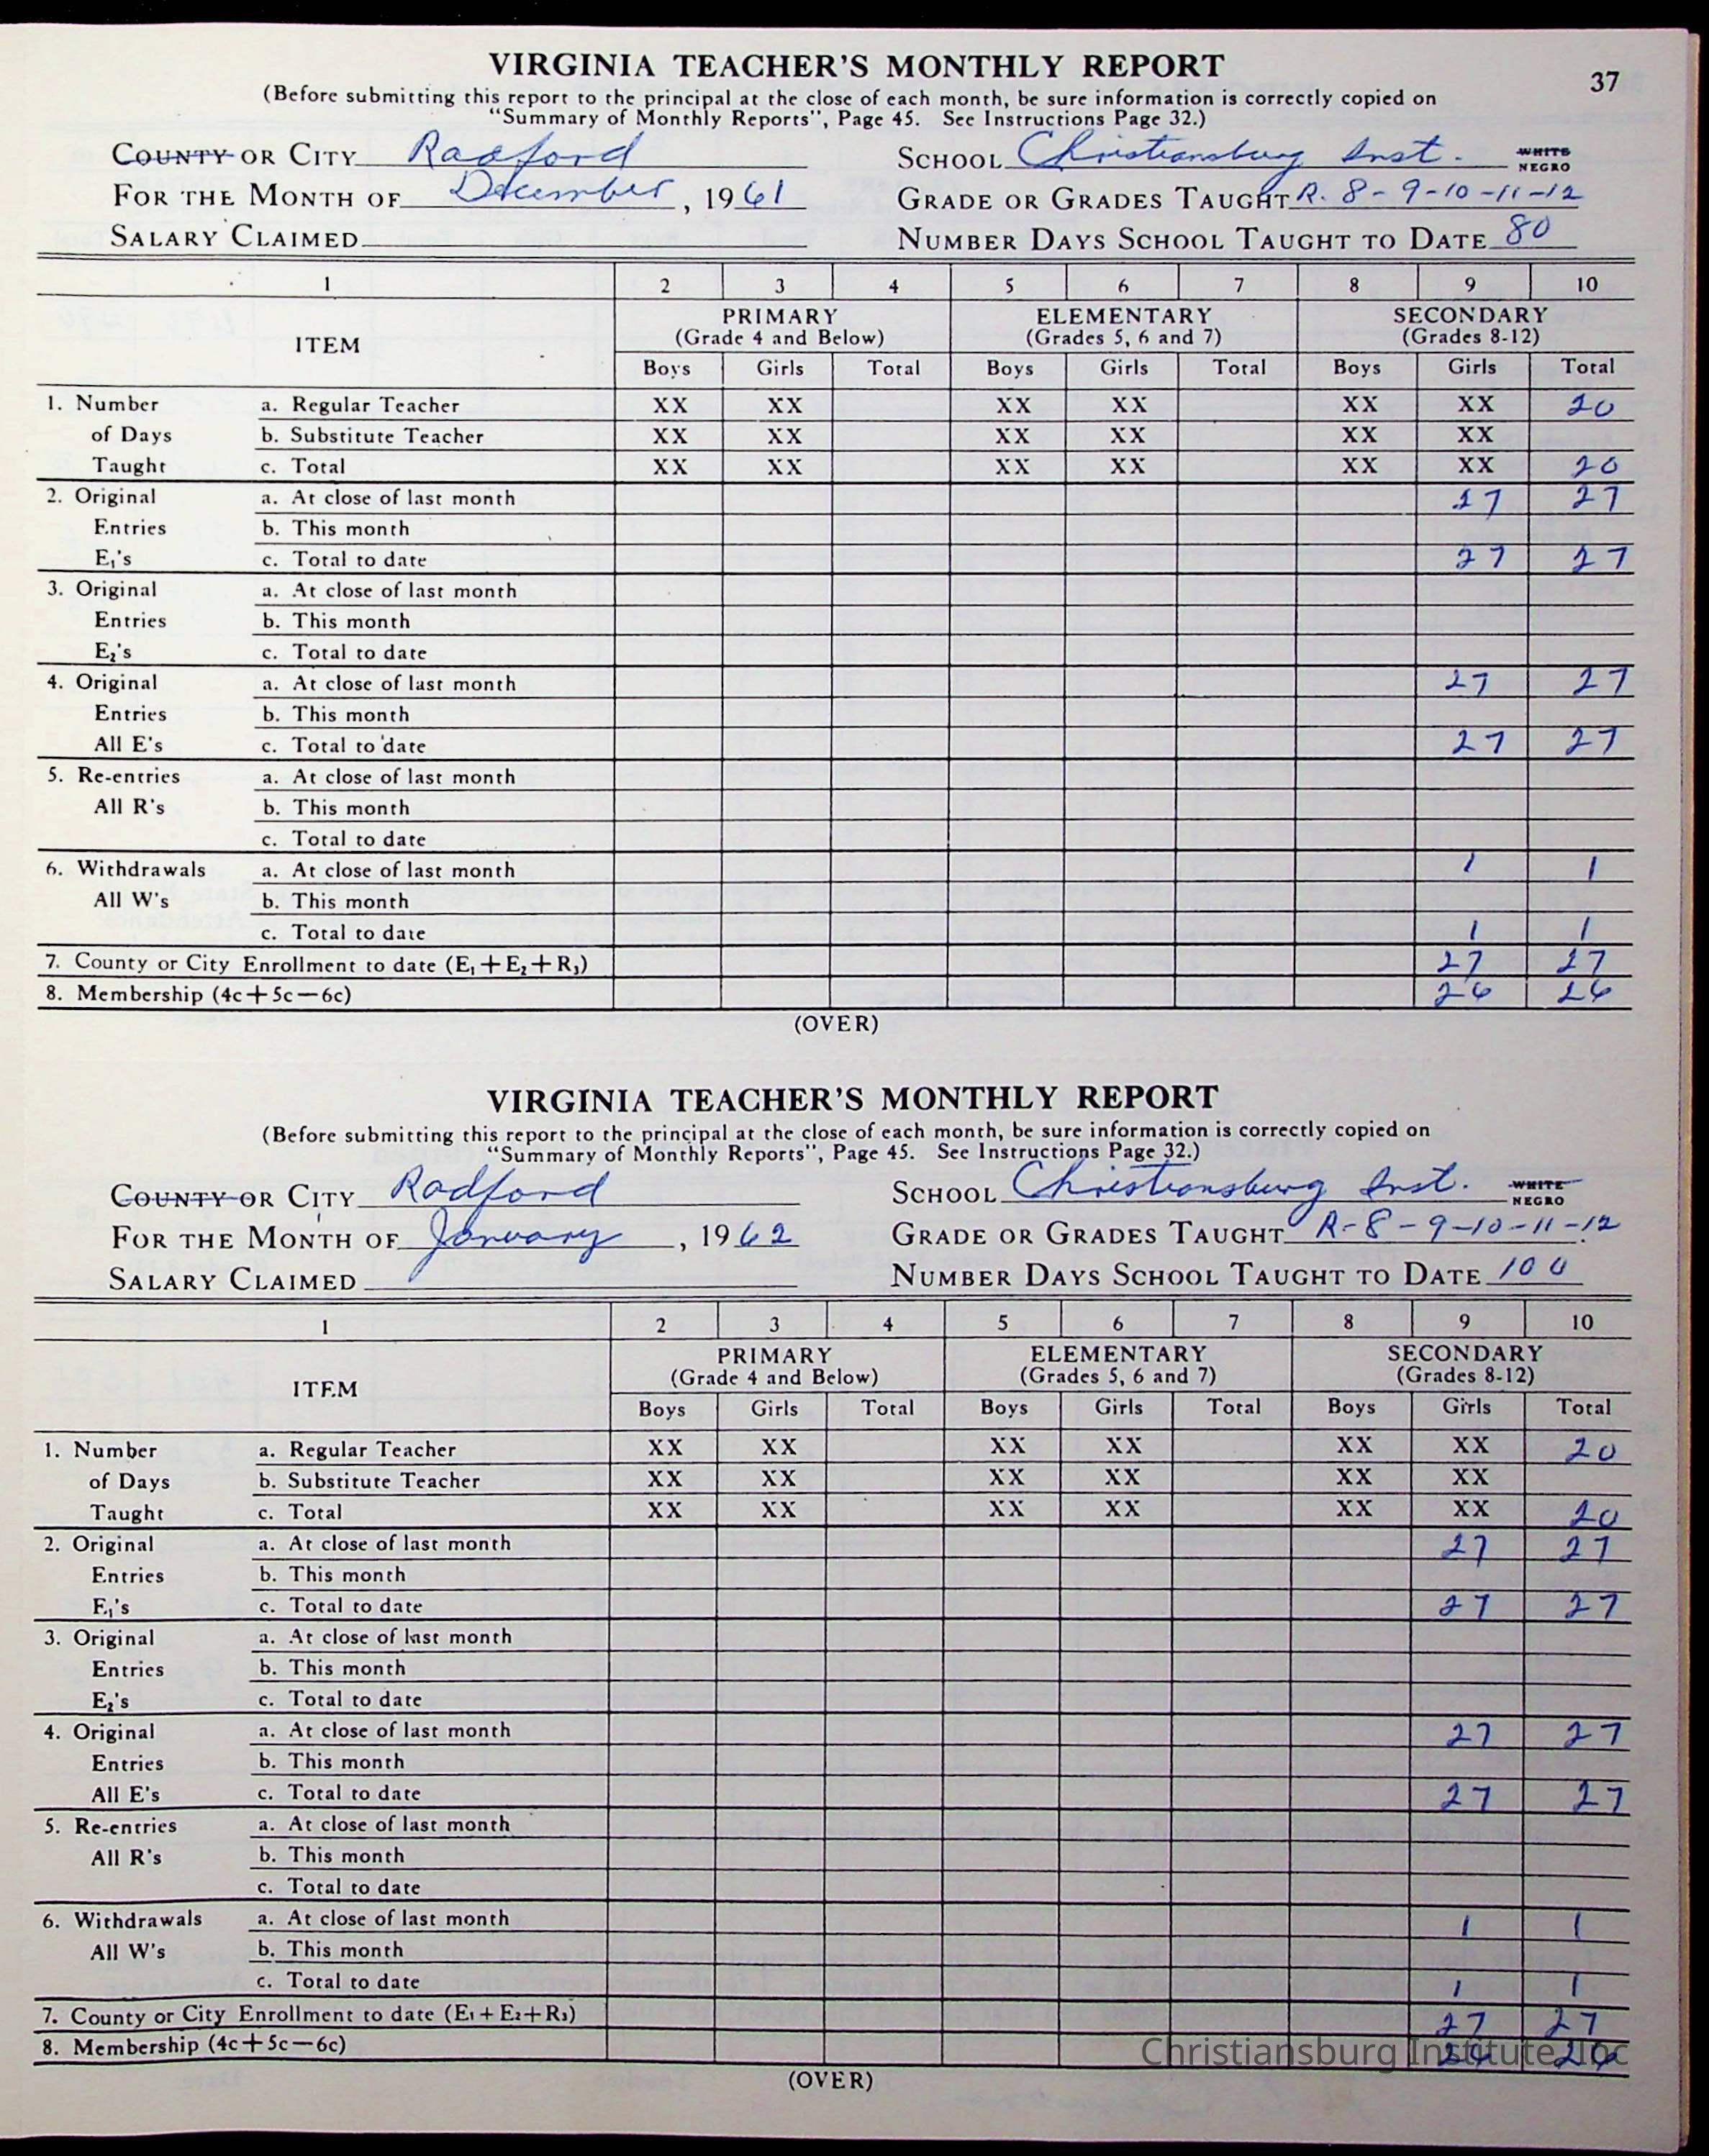 VIRGINIA TEACHER'S MONTHLY REPORT
37
(Before submitting this report to the principal at the close of each month, be sure information is correctly copied on
"Summary of Monthly Reports", Page 45. See Instructions Page 32.)
COUNTY OR CITY Radford SCHOOL Christiansburg Inst. WHITE NEGRO
FOR THE MONTH OF December, 1961 GRADE OR GRADES TAUGHT R. 8-9-10-11-12
SALARY CLAIMED NUMBER DAYS SCHOOL TAUGHT TO DATE 80
1 2 3 4 5 6 7 8 9 10
ITEM PRIMARY (Grade 4 and Below) ELEMENTARY (Grades 5, 6 and 7) SECONDARY (Grades 8-12)
Boys Girls Total Boys Girls Total Boys Girls Total
1. Number a. Regular Teacher XX XX XX XX XX XX 20
of Days b. Substitute Teacher XX XX XX XX XX XX
Taught c. Total XX XX XX XX XX XX 20
2. Original a. At close of last month 27 27
Entries b. This month
E₁'s c. Total to date 27 27
3. Original a. At close of last month
Entries b. This month
E₂'s c. Total to date
4. Original a. At close of last month 27 27
Entries b. This month
All E's c. Total to date 27 27
5. Re-entries a. At close of last month
All R's b. This month
c. Total to date
6. Withdrawals a. At close of last month 1 1
All W's b. This month
c. Total to date 1 1
7. County or City Enrollment to date (E₁+E₂+R₃) 27 27
8. Membership (4c+5c—6c) 26 26
(OVER)
VIRGINIA TEACHER'S MONTHLY REPORT
(Before submitting this report to the principal at the close of each month, be sure information is correctly copied on
"Summary of Monthly Reports", Page 45. See Instructions Page 32.)
COUNTY OR CITY Radford SCHOOL Christiansburg Inst. WHITE NEGRO
FOR THE MONTH OF January, 1962 GRADE OR GRADES TAUGHT R-8-9-10-11-12
SALARY CLAIMED NUMBER DAYS SCHOOL TAUGHT TO DATE 100
1 2 3 4 5 6 7 8 9 10
ITEM PRIMARY (Grade 4 and Below) ELEMENTARY (Grades 5, 6 and 7) SECONDARY (Grades 8-12)
Boys Girls Total Boys Girls Total Boys Girls Total
1. Number a. Regular Teacher XX XX XX XX XX XX 20
of Days b. Substitute Teacher XX XX XX XX XX XX
Taught c. Total XX XX XX XX XX XX 20
2. Original a. At close of last month 27 27
Entries b. This month
E₁'s c. Total to date 27 27
3. Original a. At close of last month
Entries b. This month
E₂'s c. Total to date
4. Original a. At close of last month 27 27
Entries b. This month
All E's c. Total to date 27 27
5. Re-entries a. At close of last month
All R's b. This month
c. Total to date
6. Withdrawals a. At close of last month 1 1
All W's b. This month
c. Total to date 1 1
7. County or City Enrollment to date (E₁+E₂+R₃) 27 27
8. Membership (4c+5c—6c) 26 26
Christiansburg Institute, Inc
(OVER)